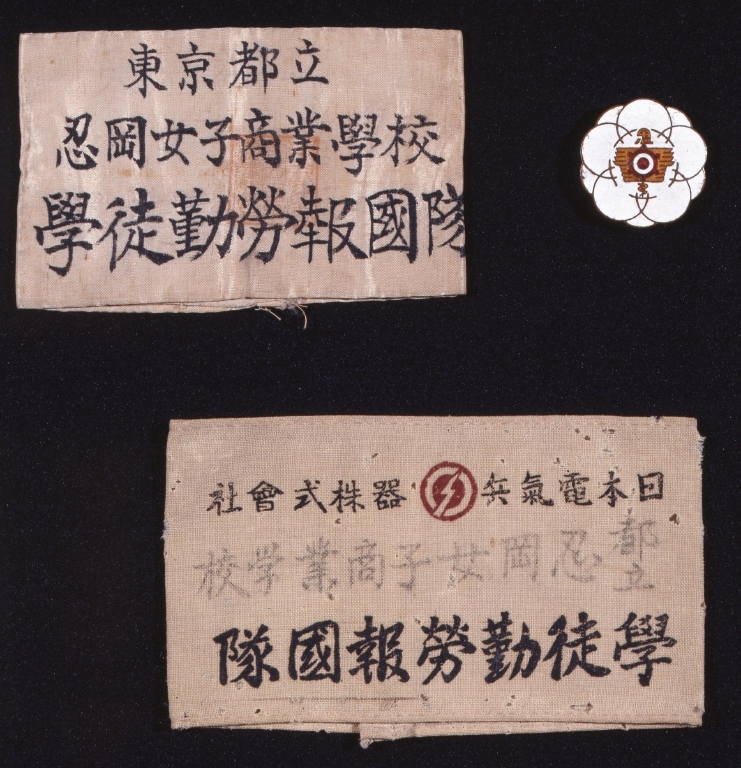 東京都立
忍岡女子商業學校
學徒勤勞報國隊
日本電氣兵器株式會社
都立忍岡女子商業学校
學徒勤勞報國隊